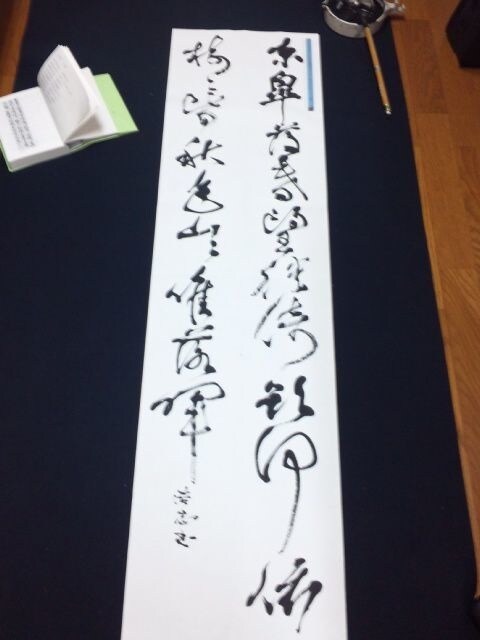 東皐薄暮望徙倚欲何依
樹々皆秋色山々唯落暉